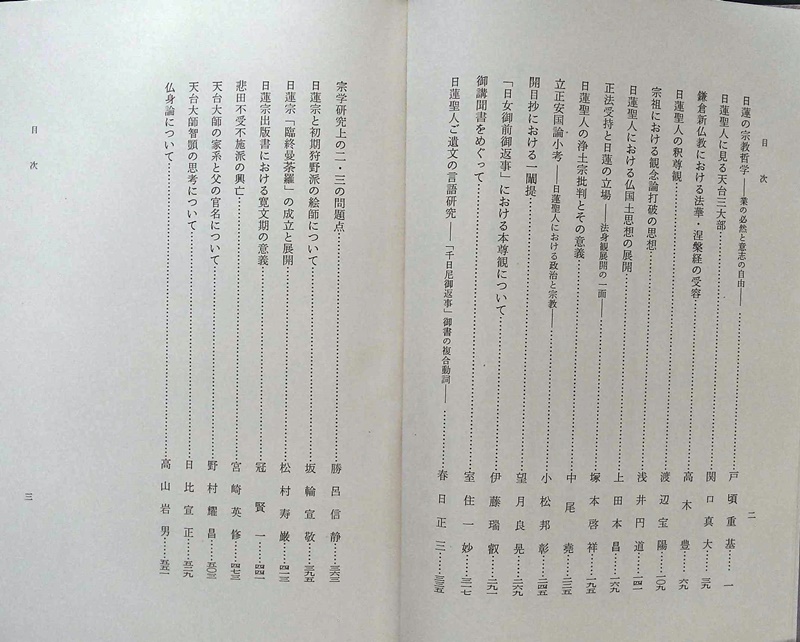 目次
二
日蓮の宗教哲学――業の必然と意志の自由――…………戸頃重基……一
日蓮聖人に見る天台三大部…………関口真大……三九
鎌倉新仏教における法華・涅槃経の受容…………高木豊……六九
日蓮聖人の釈尊観…………渡辺宝陽……一〇九
宗祖における観念論打破の思想…………浅井円道……一四一
日蓮聖人における仏国土思想の展開…………上田本昌……一六九
正法受持と日蓮の立場――法身観展開の一面――…………塚本啓祥……一九五
日蓮聖人の浄土宗批判とその意義…………中尾堯……二二五
立正安国論小考――日蓮聖人における政治と宗教――…………小松邦彰……二四五
開目抄における一闡提…………望月良晃……二六九
「日女御前御返事」における本尊観について…………伊藤瑞叡……二九一
御講聞書をめぐって…………室住一妙……三一七
日蓮聖人ご遺文の言語研究――「千日尼御返事」御書の複合動詞――…………春日正三……三三五
宗学研究上の二・三の問題点…………勝呂信静……三六三
日蓮宗と初期狩野派の絵師について…………坂輪宣敬……三九五
日蓮宗「臨終曼荼羅」の成立と展開…………松村寿巌……四一三
日蓮宗出版書における寛文期の意義…………冠賢一……四四一
悲田不受不施派の興亡…………宮崎英修……四七三
天台大師の家系と父の官名について…………野村耀昌……五〇三
天台大師智顗の思考について…………日比宣正……五二九
仏身論について…………高山岩男……五五一
目次
三